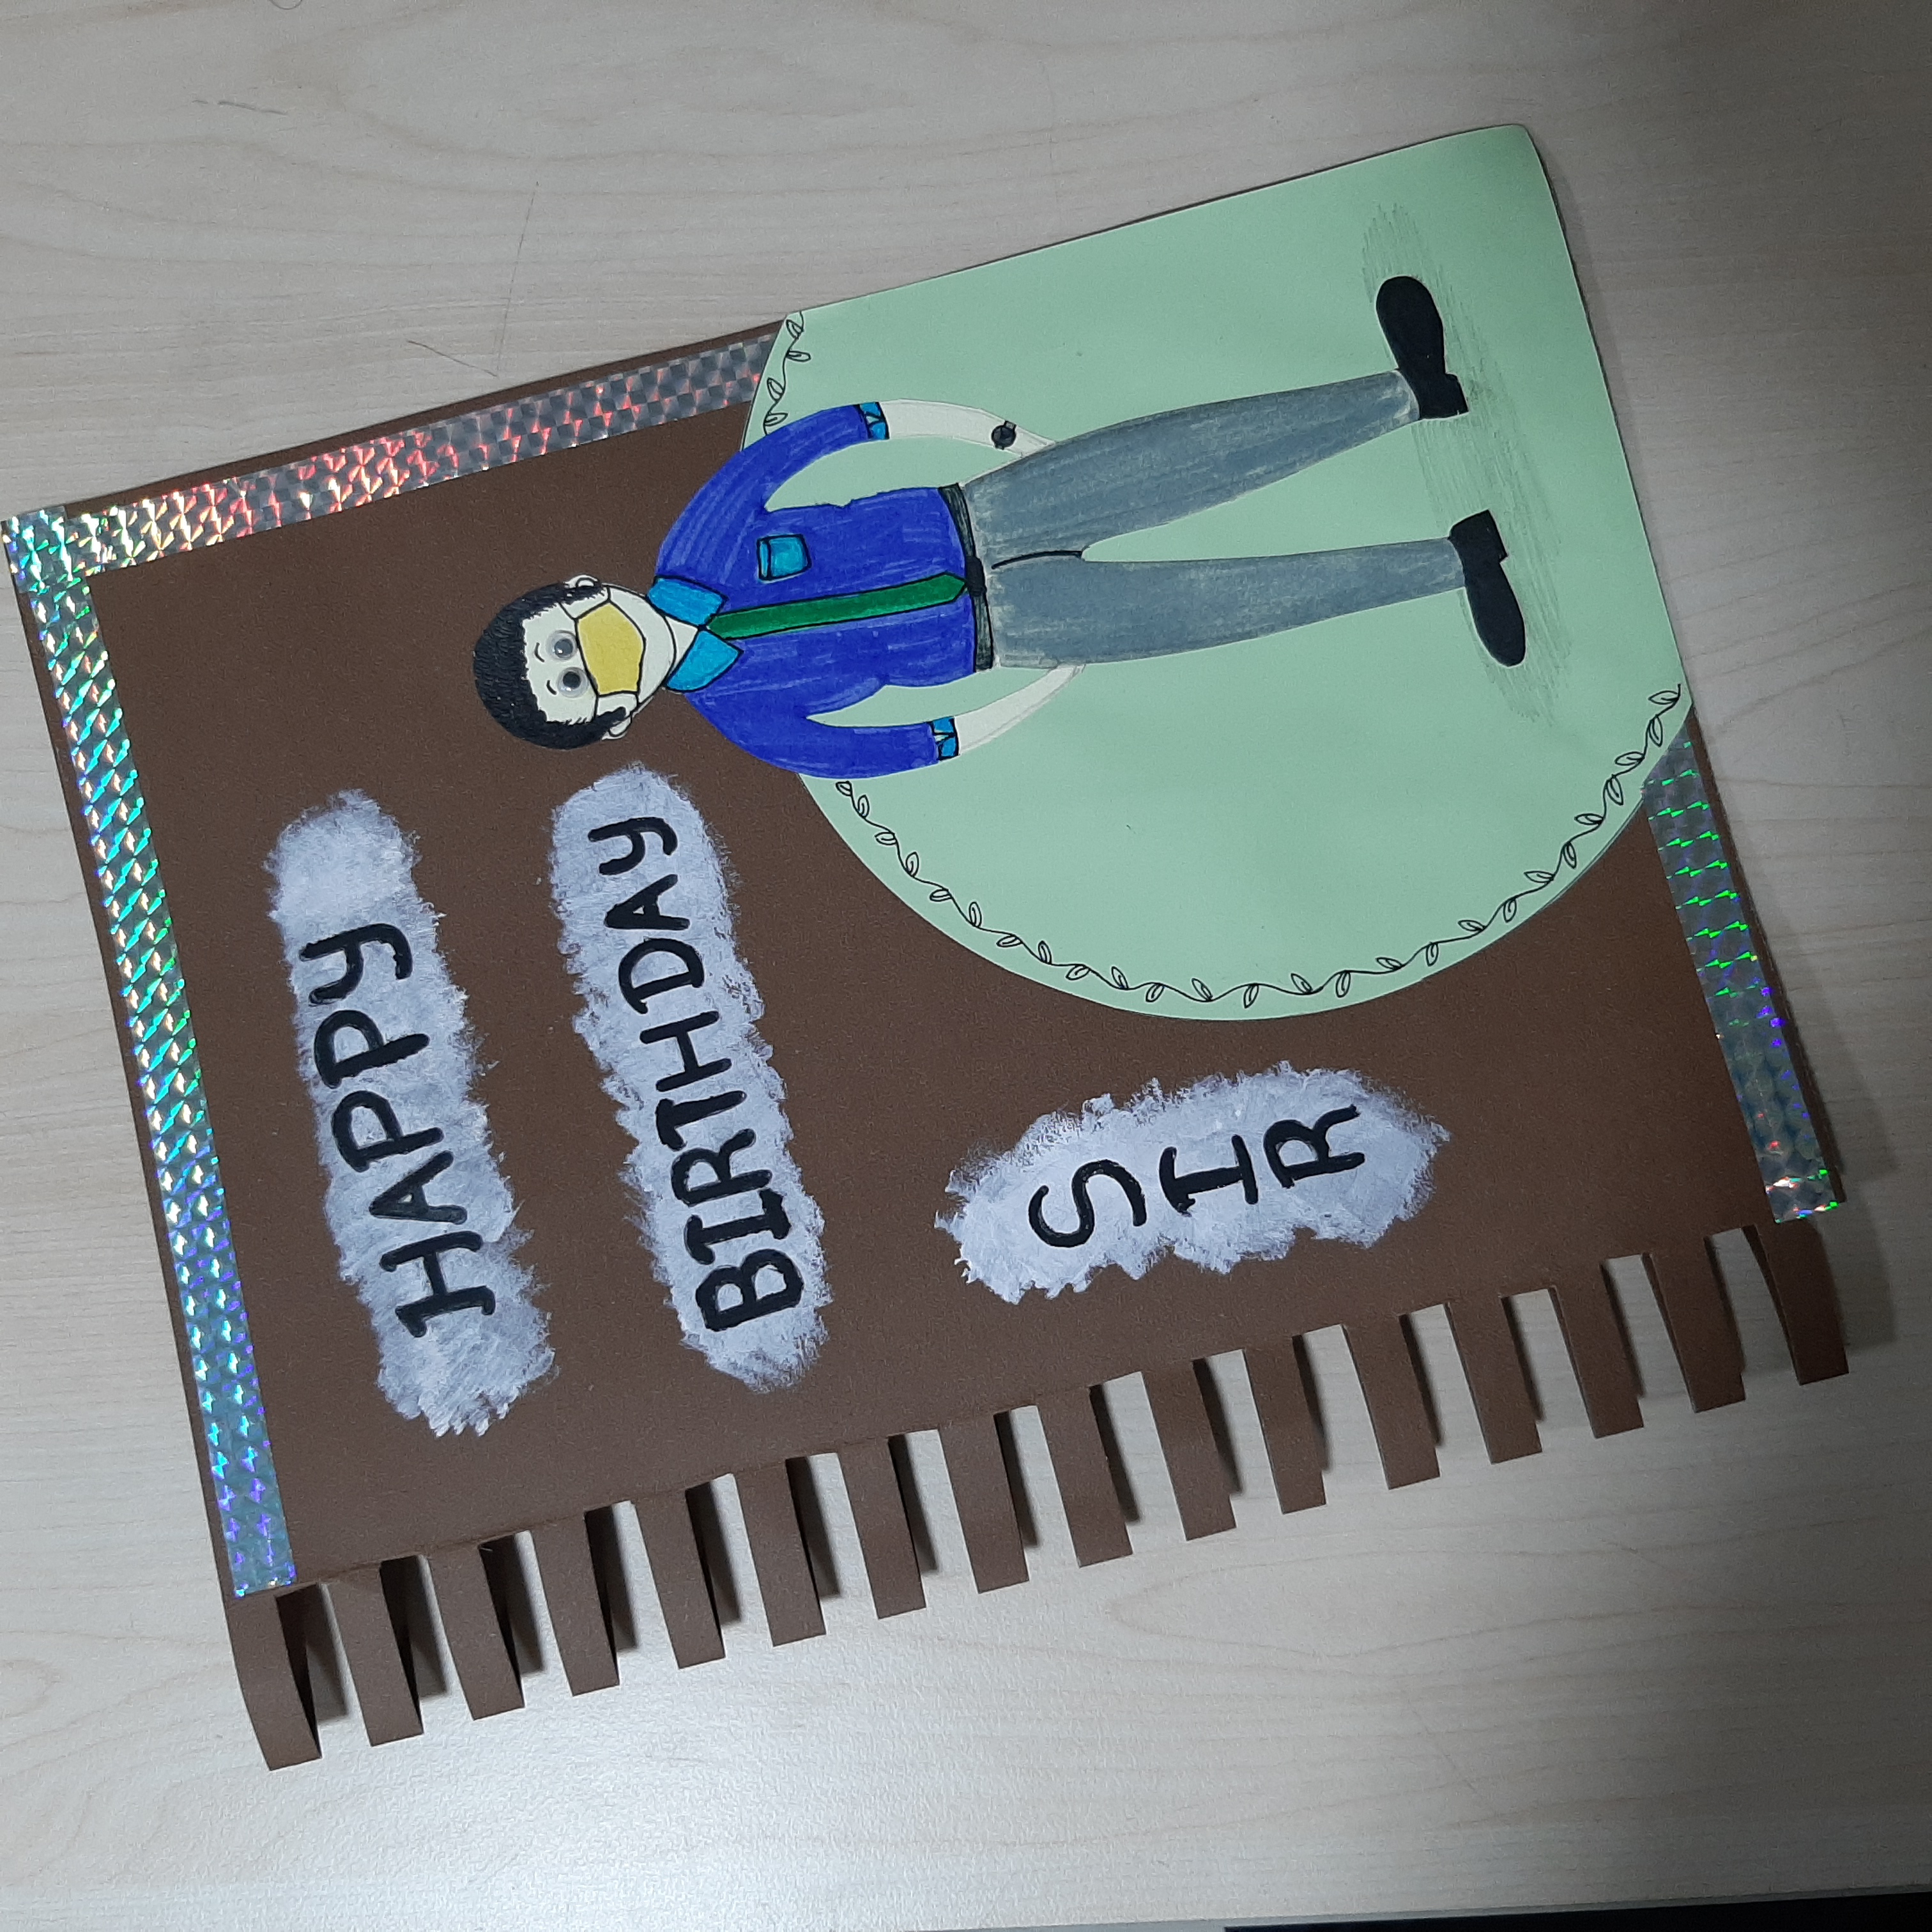 HAPPY
BIRTHDAY
SIR